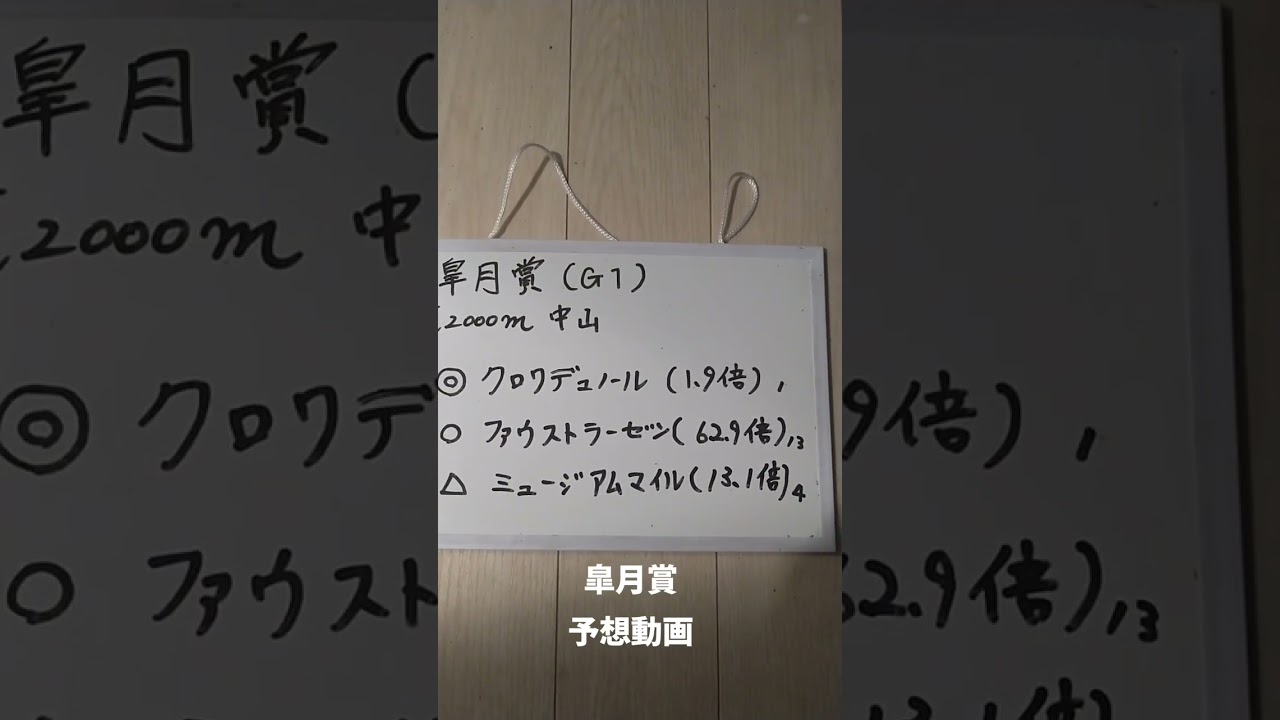 皐月賞(G1)
2000m 中山
◎ クロワデュノール (1.9倍) 1
○ ファウストラーゼン(62.9倍) 13
△ ミュージアムマイル(13.1倍) 4
皐月賞
予想動画